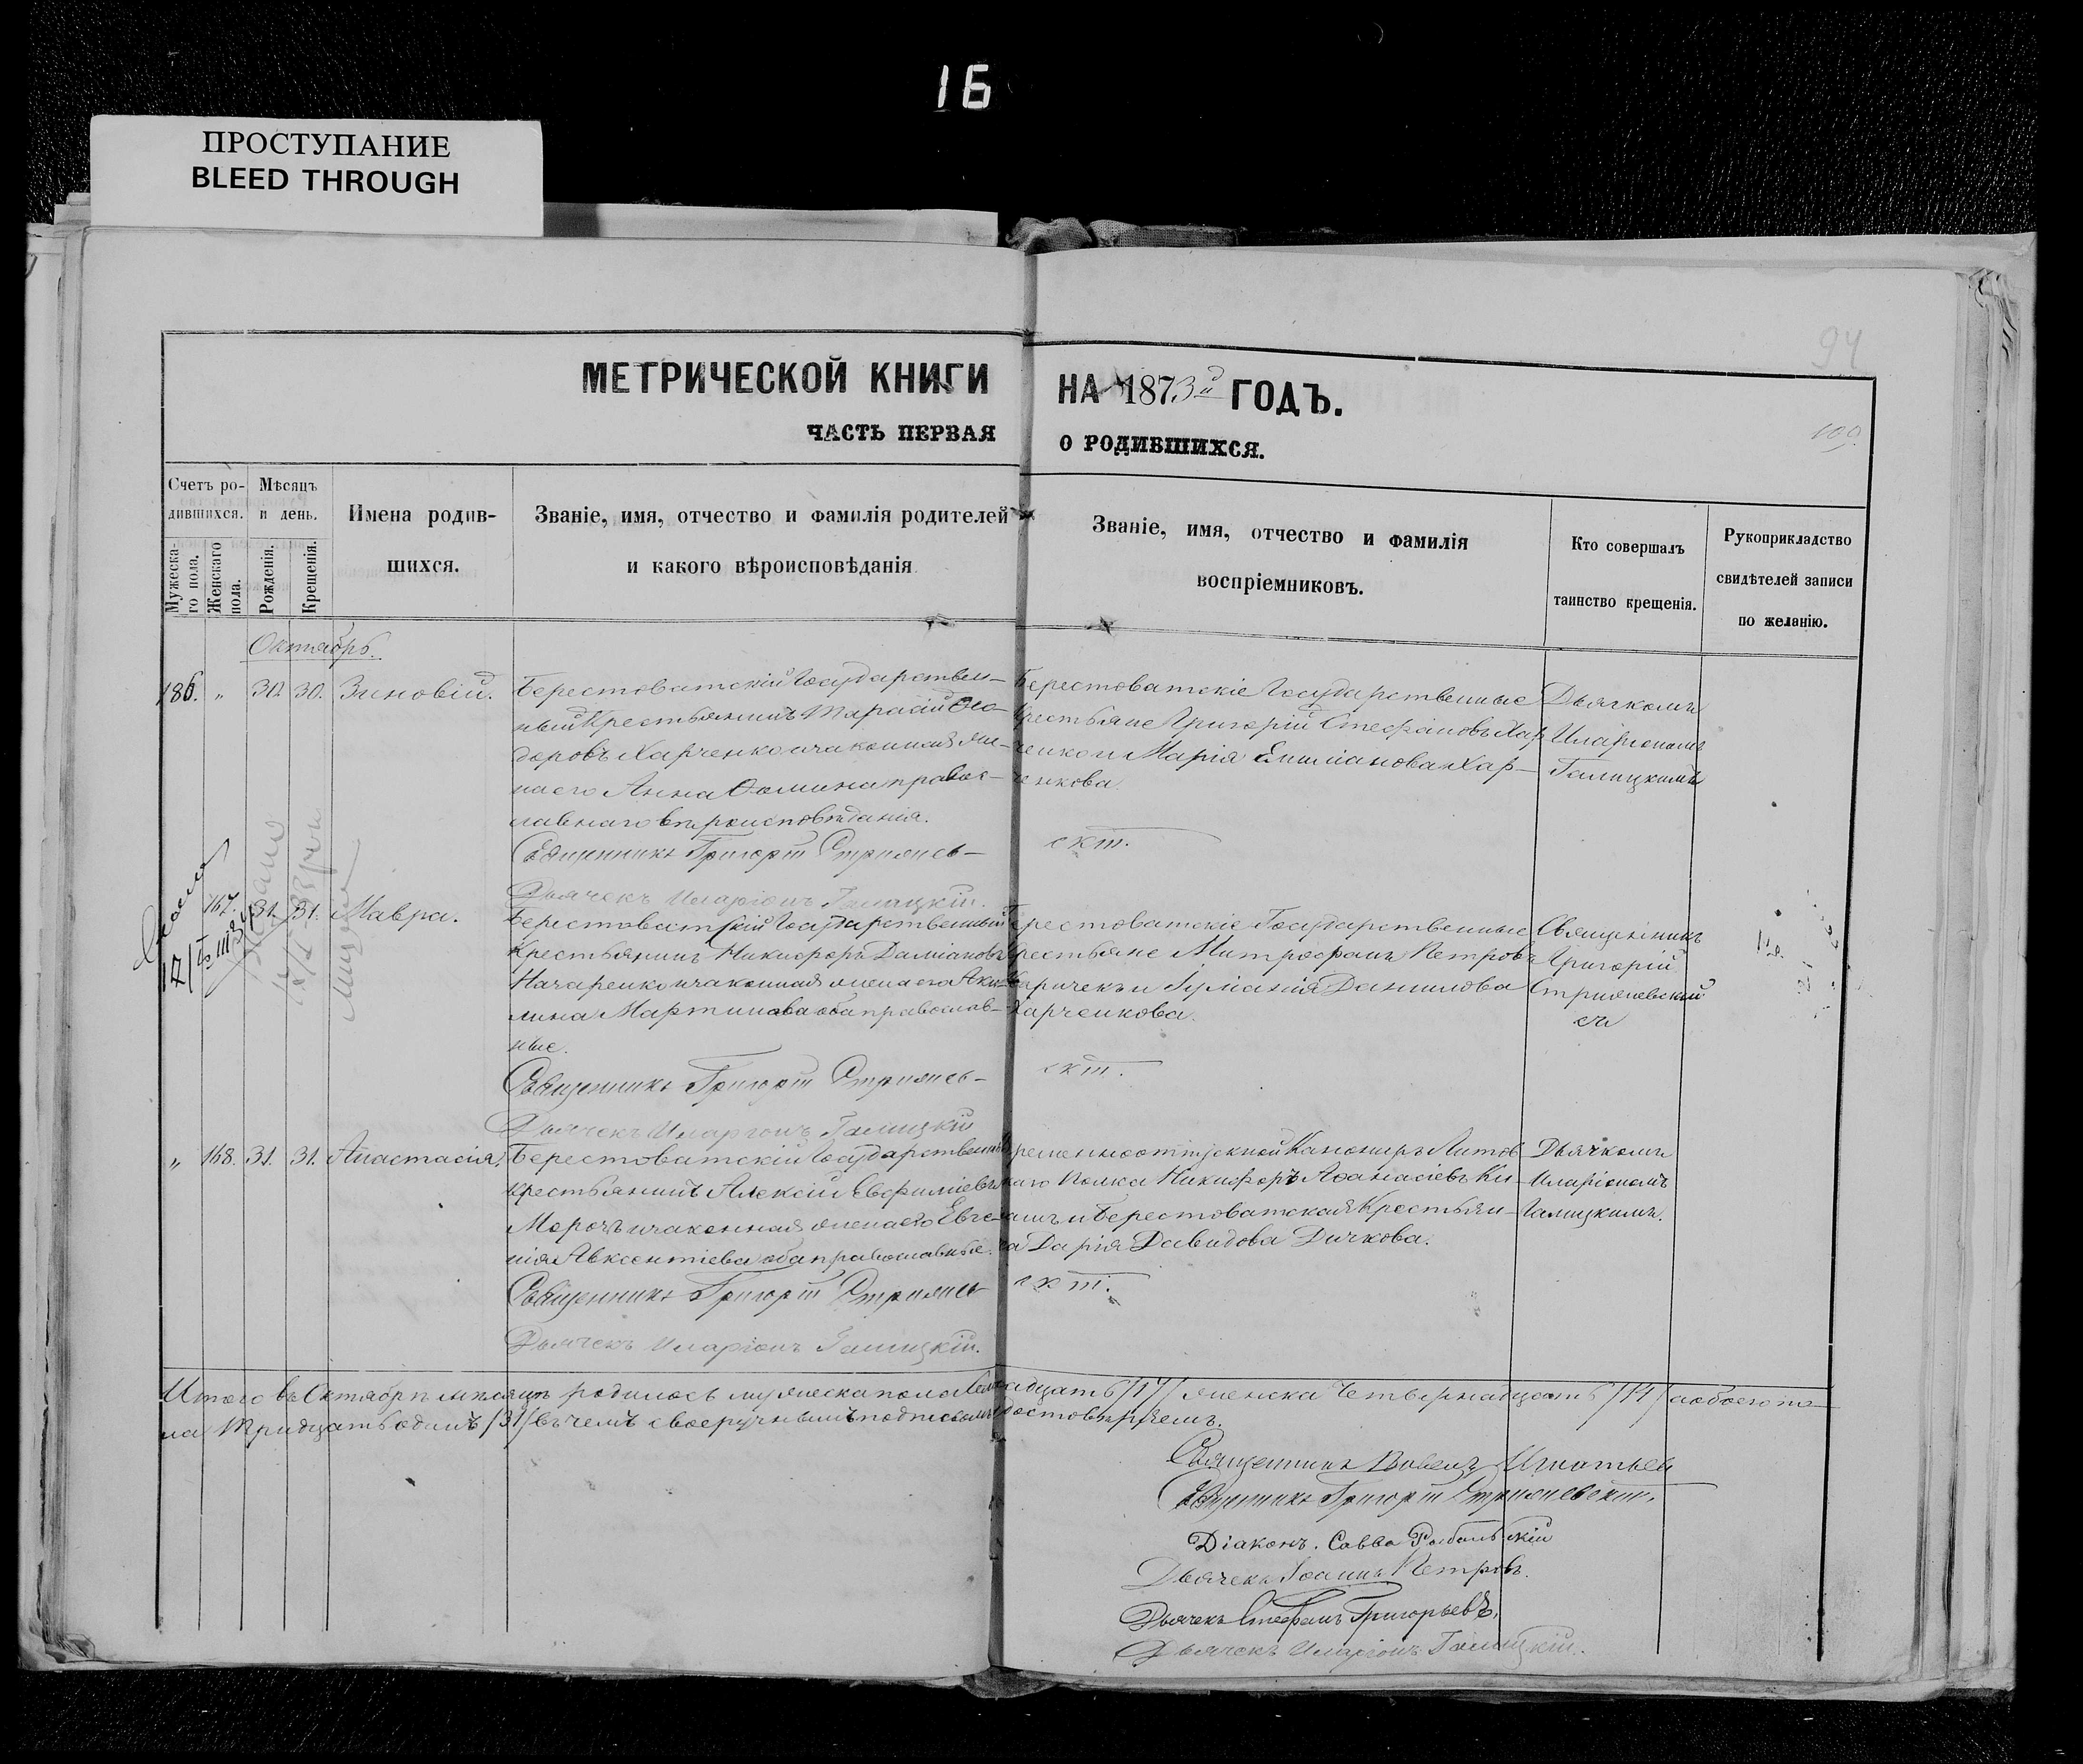 16
ПРОСТУПАНИЕ
BLEED THROUGH
94
МЕТРИЧЕСКОЙ КНИГИ НА 1873й ГОДЪ.
ЧАСТЬ ПЕРВАЯ О РОДИВШИХСЯ.
109
Счетъ ро-
дившихся.
Мужеска-
го пола.
Женскаго
пола.
Мѣсяцъ
и день.
Рожденія.
Крещенія.
Имена родив-
шихся.
Званіе, имя, отчество и фамилія родителей
и какого вѣроисповѣданія
Званіе, имя, отчество и фамилія
воспріемниковъ.
Кто совершалъ
таинство крещенія.
Рукоприкладство
свидѣтелей записи
по желанію.
Октябрь.
186. „ 30. 30. Зиновій.
Берестоватскій Государствен-
ный Крестьянинъ Тарасій Ѳео-
доровъ Харченко и законная же-
на его Анна Ѳомина правос-
лавнаго вѣроисповѣданія.
Священникъ Григорій Стрижев-
скій.
Дьячекъ Иларіонъ Галицкій.
Берестоватскіе Государственные
Крестьяне Григорій Стефановъ Хар-
ченко и Марія Емиліанова Хар-
ченкова.
Дьячкомъ
Иларіономъ
Галицкимъ
167. 31. 31. Мавра.
Берестоватскій Государственный
Крестьянинъ Никифоръ Даміановъ
Назаренко и законная жена его Аки-
лина Мартинова оба православ-
ные.
Священникъ Григорій Стрижев-
скій.
Дьячекъ Иларіонъ Галицкій
Берестоватскіе Государственные
Крестьяне Митрофанъ Петровъ
Данилова
Харченкова.
Священникъ
Григорій
Стрижевскій
„ 168. 31. 31. Анастасія.
Берестоватскій Государственный
Крестьянинъ Алексій Евфиміевъ
Морозъ и законная жена его Евге-
нія Авксентіева оба православные.
Священникъ Григорій Стрижев-
скій.
Дьячекъ Иларіонъ Галицкій.
Временноотпускной Канониръ Литов-
каго Полка Никифоръ Аѳанасіевъ
и Берестоватская Крестьян-
ка Дарія Давидова Дичкова.
Дьячкомъ
Иларіономъ
Галицкимъ.
Итого въ Октябрѣ мѣсяцѣ родилось мужеска пола Семнадцать /17/ женска Четырнадцать /14/ а обоего по-
ла Тридцать одинъ /31/ въ чемъ своеручнымъ подписомъ удостовѣряемъ.
Священникъ Павелъ Игнатьев
Священникъ Григорій Стрижевскій.
Діаконъ. Савва
Дьячекъ Іоаннъ Петровъ.
Дьячекъ Стефанъ Григорьевъ.
Дьячекъ Иларіонъ Галицкій.